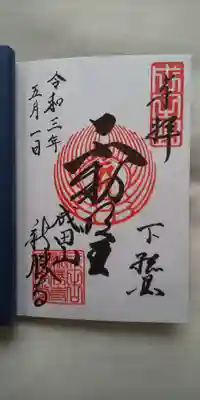 奉拝
下總
不動明王
成田山
新勝寺
令和三年
五月一日